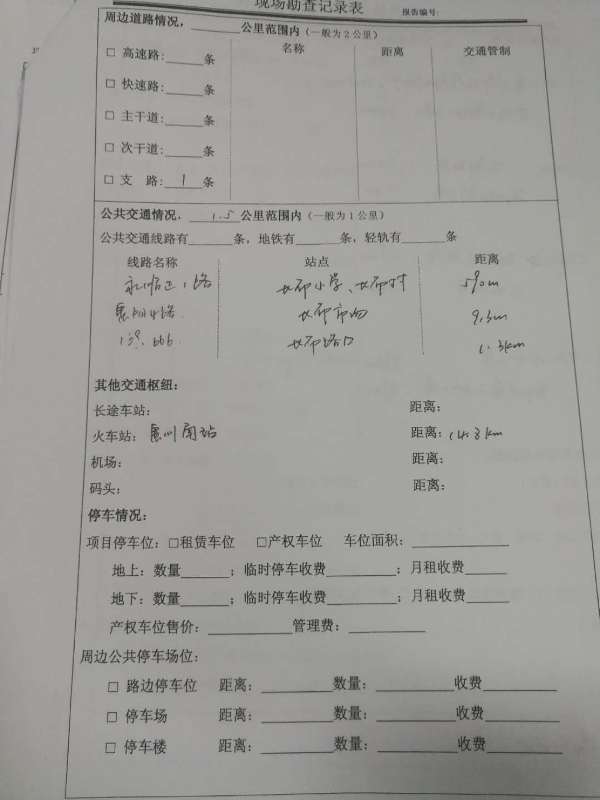 现场勘查记录表 报告编号:
周边道路情况，______公里范围内（一般为2公里）
名称 距离 交通管制
□ 高速路:_____条
□ 快速路:_____条
□ 主干道:_____条
□ 次干道:_____条
□ 支 路:__1__条
公共交通情况，__1.5__公里范围内（一般为1公里）
公共交通线路有______条，地铁有______条，轻轨有______条
线路名称 站点 距离
590m
1.3km
其他交通枢纽:
长途车站: 距离:
火车站: 惠州南站 距离: 14.3km
机场: 距离:
码头: 距离:
停车情况:
项目停车位: □租赁车位 □产权车位 车位面积:__________
地上: 数量______; 临时停车收费________; 月租收费_____
地下: 数量______; 临时停车收费________; 月租收费_____
产权车位售价:__________管理费:_________
周边公共停车场位:
□ 路边停车位 距离:________数量:________收费________
□ 停车场 距离:________数量:________收费________
□ 停车楼 距离:________数量:________收费________